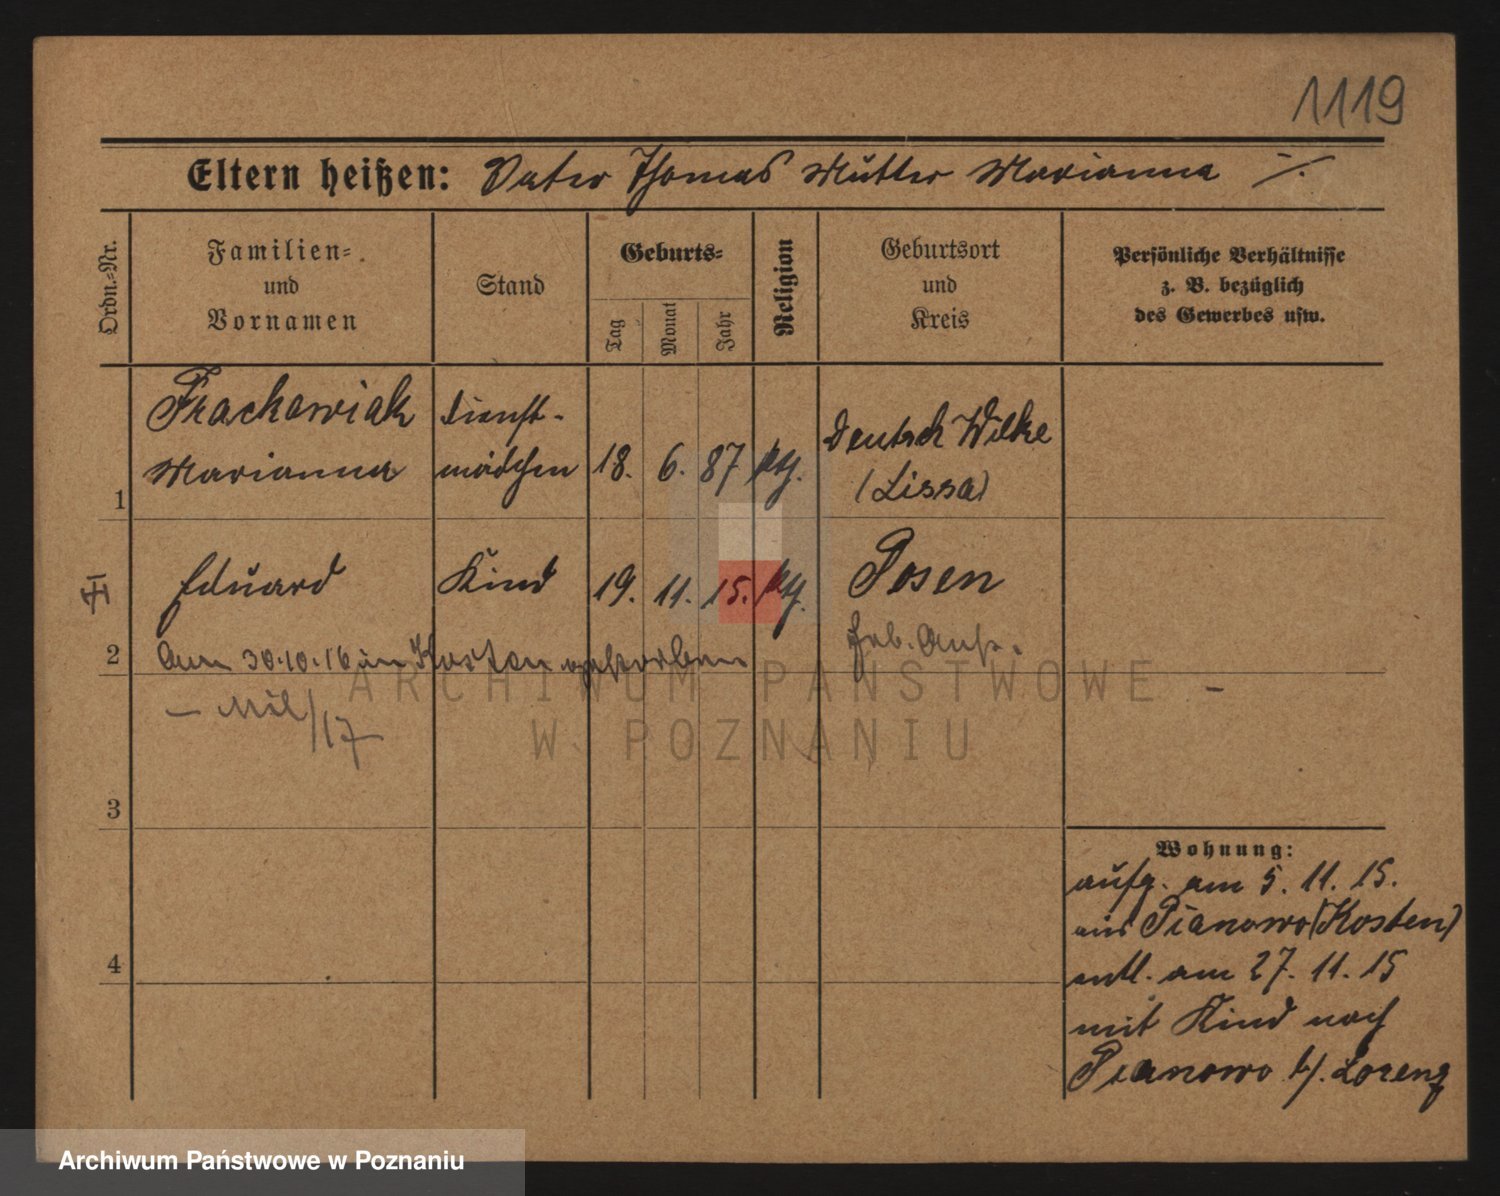 1119
Eltern heißen: Vater Thomas Mutter Marianna ./.
Ordn.-Nr.
Familien-
und
Vornamen
Stand
Geburts-
Tag
Monat
Jahr
Religion
Geburtsort
und
Kreis
Persönliche Verhältnisse
z. B. bezüglich
des Gewerbes usw.
1
Frackowiak
Marianna
Dienst-
mädchen
18.
6.
87
ktg.
Deutsch Wilke
(Lissa)
2
Eduard
Kind
19.
11.
15.
ktg.
Posen
Heb. Anst.
Am 30.10.16 in Kosten gestorben
— Mil/17
3
4
Wohnung:
aufg. am 5. 11. 15.
aus Pianowo (Kosten)
entl. am 27. 11. 15
mit Kind nach
Pianowo b/. Lorenz
ARCHIWUM PAŃSTWOWE
W POZNANIU
Archiwum Państwowe w Poznaniu